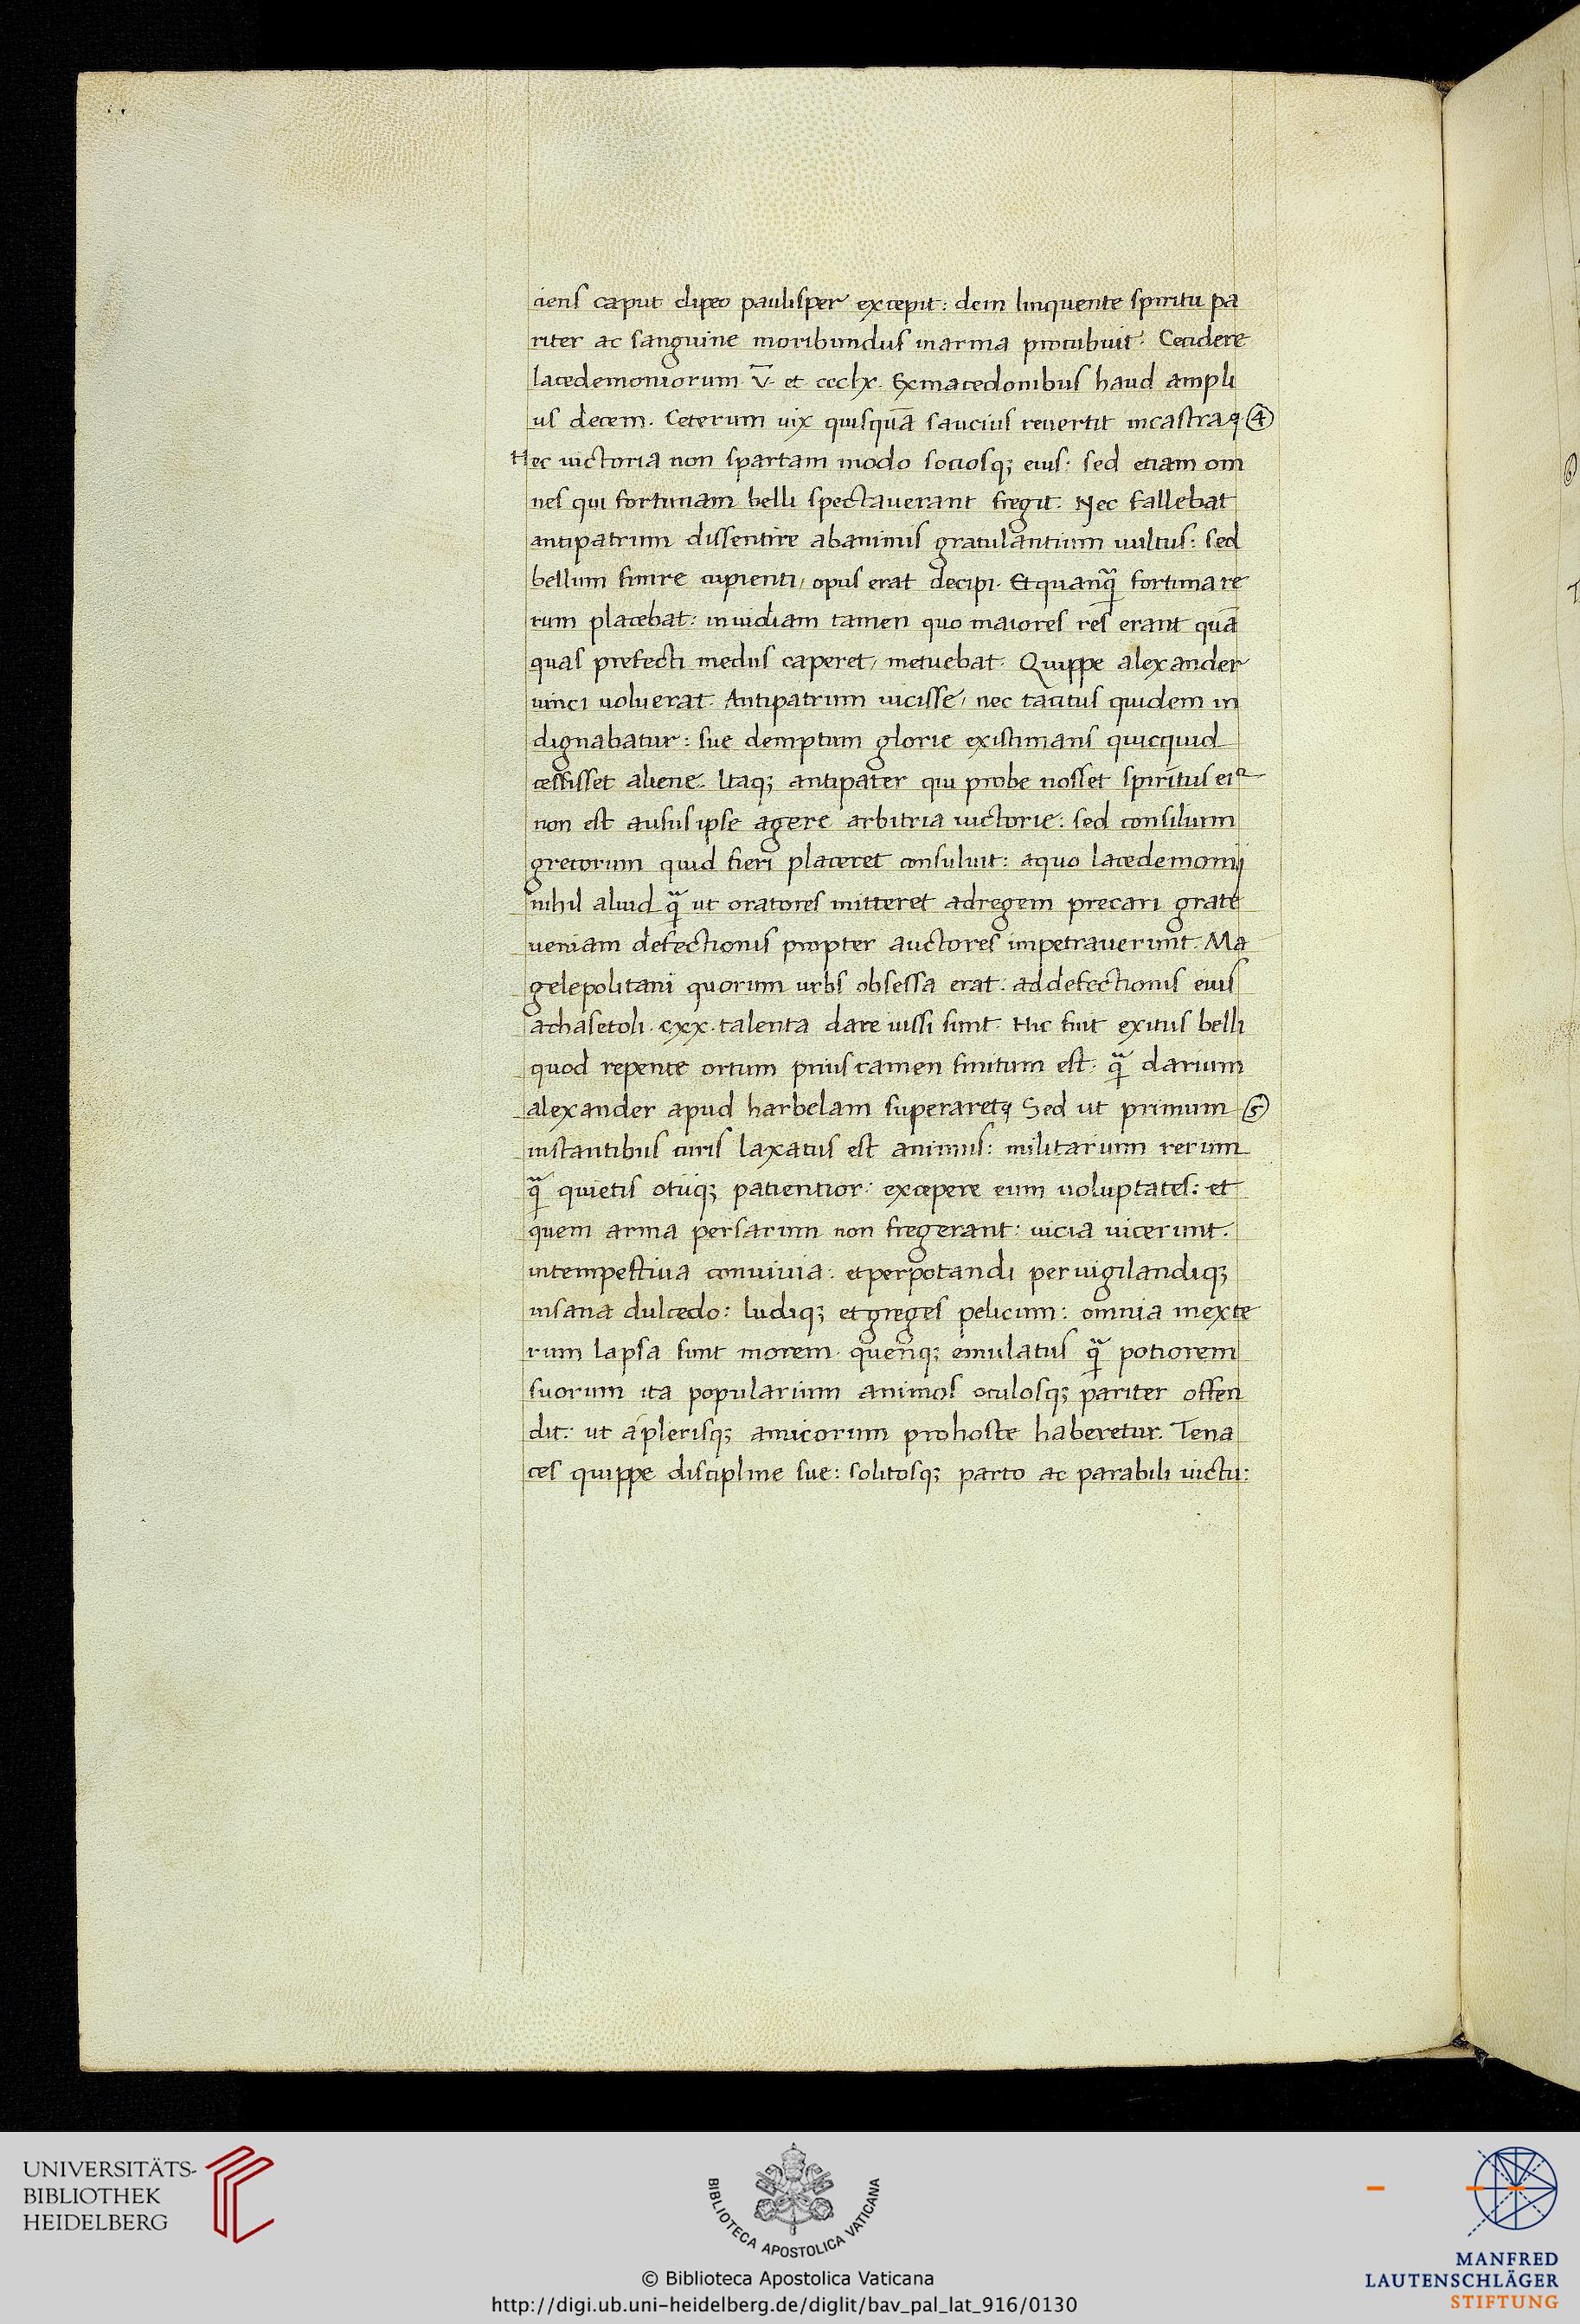 ciens caput clipeo paulisper excepit: dein linquente spiritu pa
riter ac sanguine moribundus inarma procubuit. Cecidere
lacedemoniorum. v̅. et ccclx. Exmacedonibus haud ampli
us decem. Ceterum uix quisquā saucius reuertit incastra. ④
Hec uictoria non spartam modo sociosq; eius: sed etiam om
nes qui fortunam belli spectauerant fregit. Nec fallebat
antipatrum dissentire abanimis gratulantium uultus: sed
bellum finire cupienti, opus erat decipi. Et quanq̃ fortuna re
rum placebat: inuidiam tamen quo maiores res erant quā
quas prefecti medus caperet, metuebat. Quippe alexander
uinci uoluerat. Antipatrum uicisse, nec tacitus quidem in
dignabatur: sue demptum glorie existimans quicquid
cessisset aliene. Itaq; antipater qui probe nosset spiritus eiꝰ
non est ausus ipse agere arbitria uictorie: sed consilium
grecorum quid fieri placeret consuluit: aquo lacedemonij
nihil aliud q̃ ut oratores mitteret adregem precari grate
ueniam defectionis propter auctores impetrauerunt. Ma
gelepolitani quorum urbs obsessa erat: addefectionis eius
achasetoli. cxx. talenta dare iussi sunt. Hic fuit exitus belli
quod repente ortum prius tamen finitum est. q̃ darium
alexander apud harbelam superaret Sed ut primum ⑤
instantibus curis laxatus est animus: militarium rerum
q̃ quietis otiiq; patientior: excepere eum uoluptates: et
quem arma persarum non fregerant: uicia uicerunt.
intempestiua conuiuia: et perpotandi peruigilandiq;
insana dulcedo: ludiq; et greges pelicum: omnia inexte
rum lapsa sunt morem. quenq; emulatus q̃ potiorem
suorum ita popularium animos oculosq; pariter offen
dit: ut a plerisq; amicorum prohoste haberetur. Tena
ces quippe discipline sue: solitosq; parto ac parabili uictu:
UNIVERSITÄTS-
BIBLIOTHEK
HEIDELBERG
BIBLIOTECA APOSTOLICA VATICANA
© Biblioteca Apostolica Vaticana
http://digi.ub.uni-heidelberg.de/diglit/bav_pal_lat_916/0130
MANFRED
LAUTENSCHLÄGER
STIFTUNG